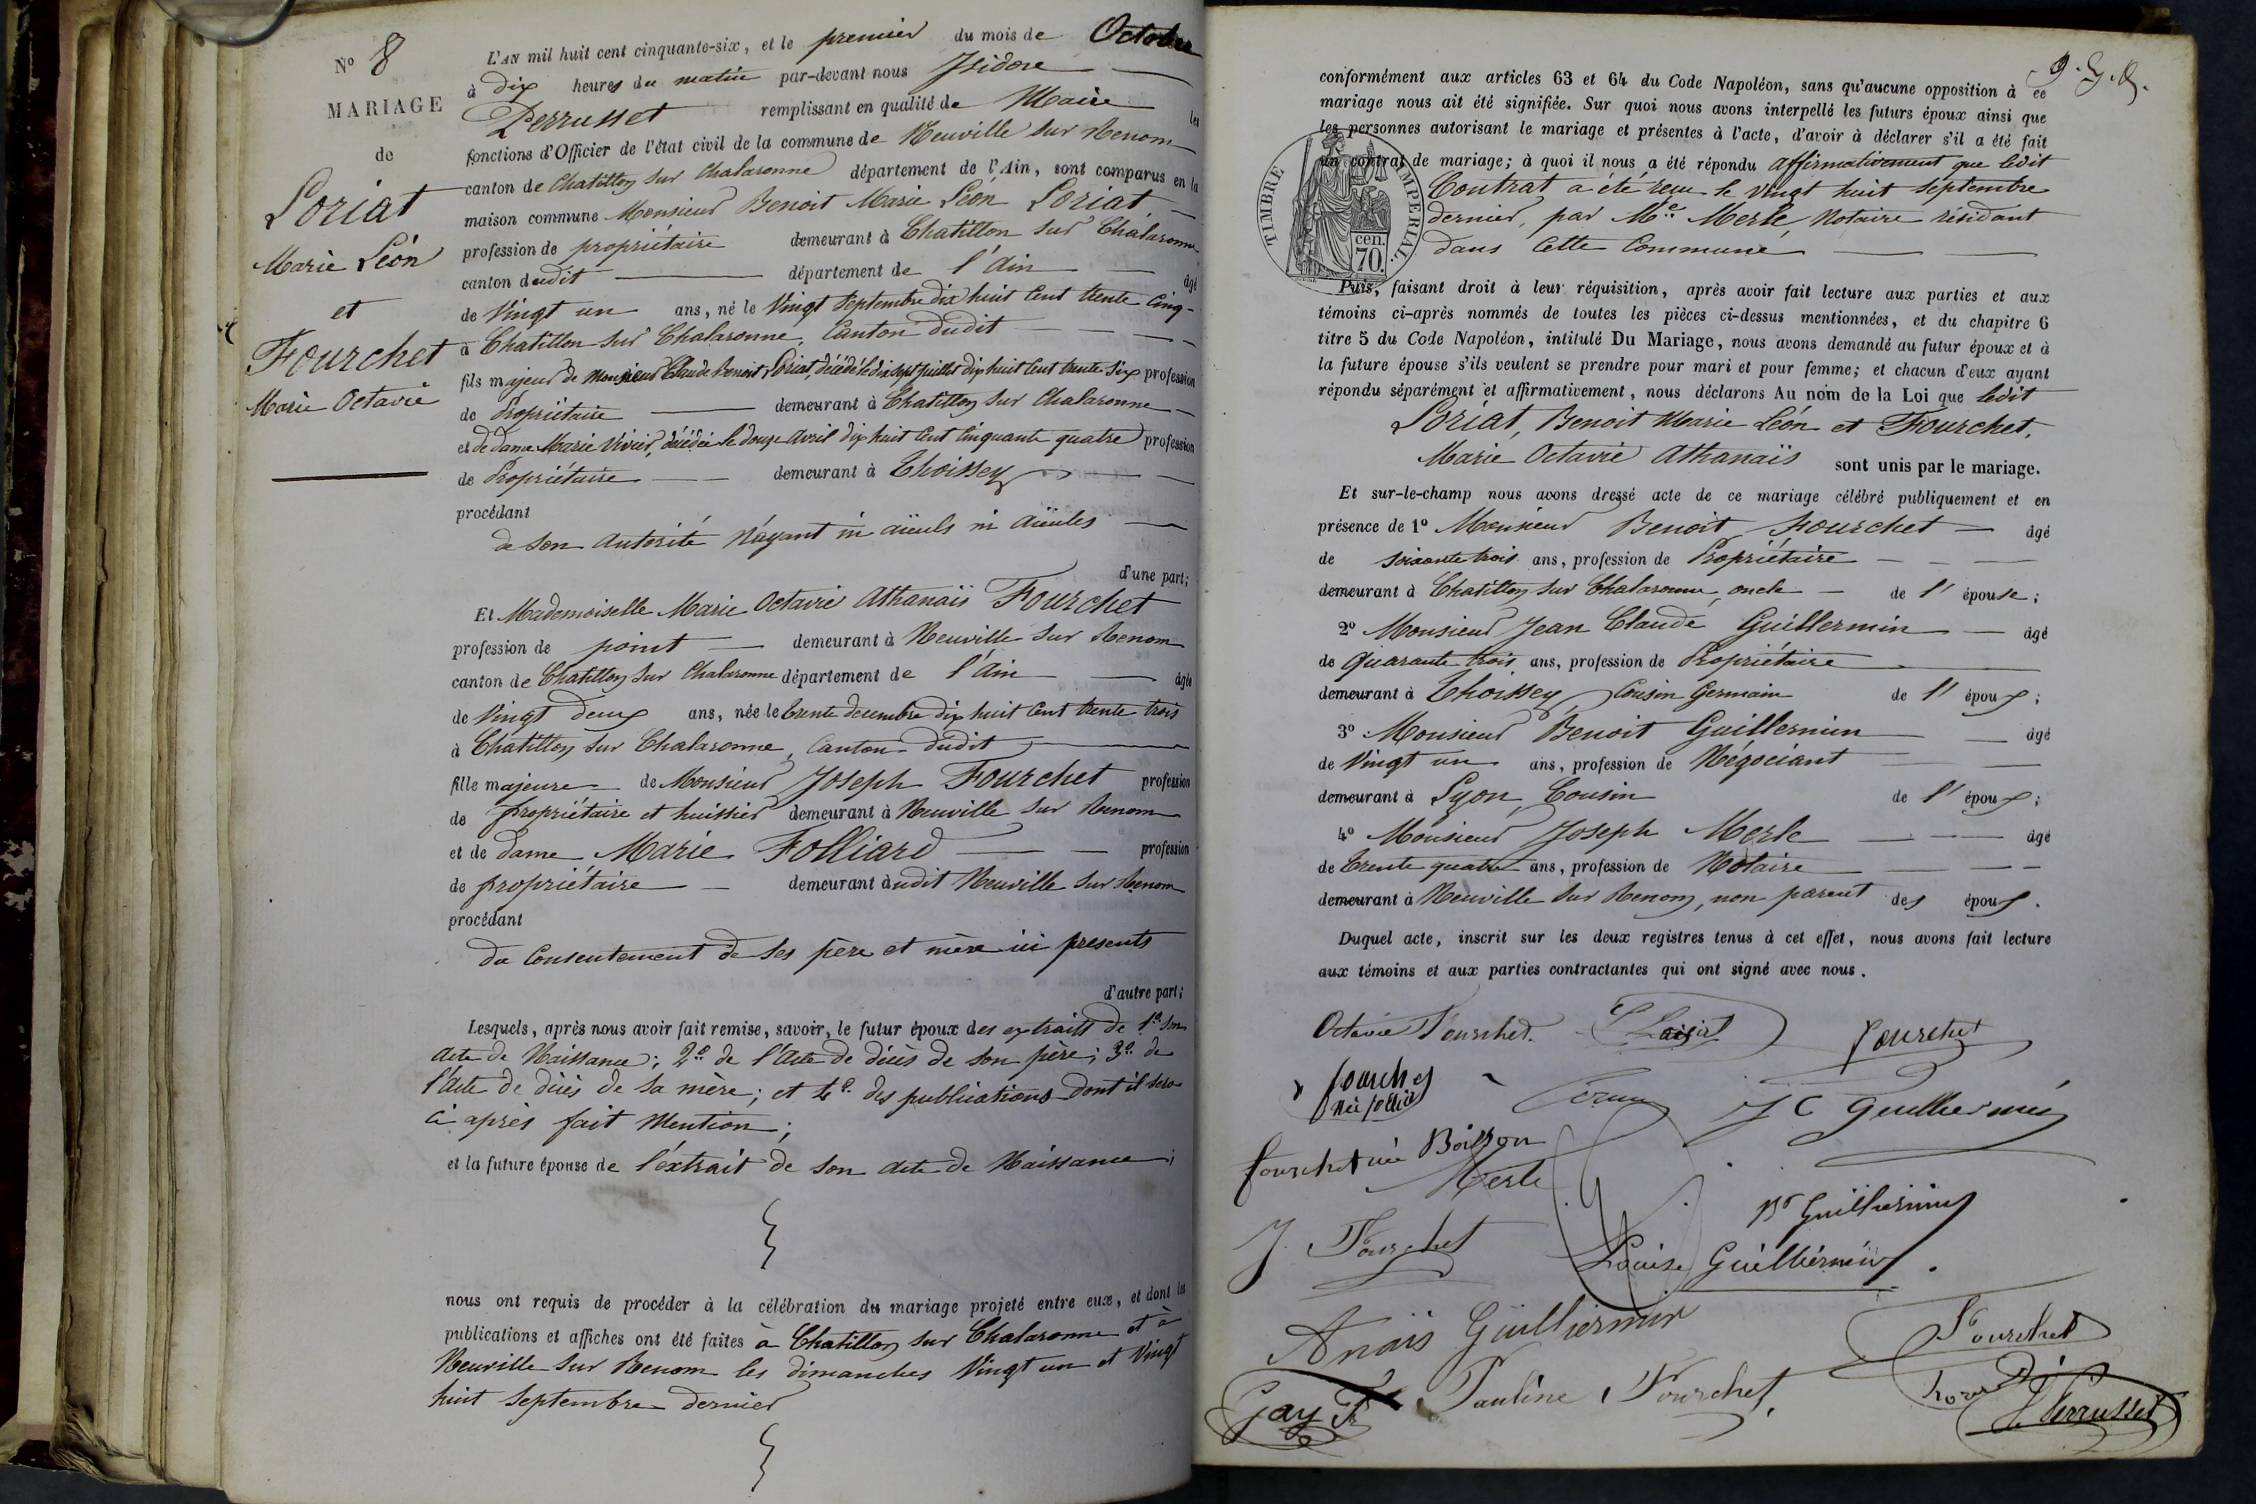 N° 8
MARIAGE
de
Loriat
Marie Léon
et
Fourchet
Marie Octavie
L'AN mil huit cent cinquante-six, et le premier du mois de Octobre
à dix heures du matin par-devant nous Isidore
Perrusset remplissant en qualité de Maire les
fonctions d'Officier de l'état civil de la commune de Neuville sur Renom
canton de Chatillon sur Chalaronne département de l'Ain, sont comparus en la
maison commune Monsieur Benoit Marie Léon Loriat
profession de propriétaire demeurant à Chatillon sur Chalaronne
canton dudit département de l'Ain âgé
de Vingt un ans, né le Vingt Septembre dix huit Cent trente Cinq
à Chatillon sur Chalaronne, Canton dudit
fils majeur de Monsieur Claude Benoit Loriat, décédé le dix sept juillet dix huit Cent trente Six profession
de Propriétaire demeurant à Chatillon sur Chalaronne
et de dame Marie Vivier, décédée le douze Avril dix huit Cent Cinquante quatre profession
de Propriétaire demeurant à Thoissey
procédant
de son autorité N'ayant ni aïeuls ni aïeules
d'une part;
Et Mademoiselle Marie Octavie Athanaïs Fourchet
profession de point demeurant à Neuville sur Renom
canton de Chatillon sur Chalaronne département de l'Ain âgée
de Vingt deux ans, née le trente decembre dix huit Cent trente trois
à Chatillon sur Chalaronne, Canton dudit
fille majeure de Monsieur Joseph Fourchet profession
de propriétaire et huissier demeurant à Neuville sur Renom
et de dame Marie Folliard profession
de propriétaire demeurant àudit Neuville sur Renom
procédant
du Consentement de ses père et mère ici présents
d'autre part;
Lesquels, après nous avoir fait remise, savoir, le futur époux des extraits de 1° son
acte de Naissance; 2° de l'acte de décès de son père; 3° de
l'acte de décès de sa mère; et 4° des publications dont il sera
ci après fait Mention;
et la future épouse de l'éxtrait de son acte de Naissance;
nous ont requis de procéder à la célébration du mariage projeté entre eux, et dont les
publications et affiches ont été faites à Chatillon sur Chalaronne et à
Neuville sur Renom les dimanches Vingt un et Vingt
huit Septembre dernier
conformément aux articles 63 et 64 du Code Napoléon, sans qu'aucune opposition à ce
mariage nous ait été signifiée. Sur quoi nous avons interpellé les futurs époux ainsi que
les personnes autorisant le mariage et présentes à l'acte, d'avoir à déclarer s'il a été fait
un contrat de mariage; à quoi il nous a été répondu affirmativement que ledit
Contrat a été reçu le vingt huit Septembre
dernier, par Me Merle, Notaire résidant
dans Cette Commune
TIMBRE IMPERIAL.
cen.
70.
Puis, faisant droit à leur réquisition, après avoir fait lecture aux parties et aux
témoins ci-après nommés de toutes les pièces ci-dessus mentionnées, et du chapitre 6
titre 5 du Code Napoléon, intitulé Du Mariage, nous avons demandé au futur époux et à
la future épouse s'ils veulent se prendre pour mari et pour femme; et chacun d'eux ayant
répondu séparément et affirmativement, nous déclarons Au nom de la Loi que ledit
Loriat, Benoit Marie Léon et Fourchet,
Marie Octavie Athanaïs sont unis par le mariage.
Et sur-le-champ nous avons dressé acte de ce mariage célébré publiquement et en
présence de 1° Monsieur Benoit Fourchet âgé
de soixante trois ans, profession de Propriétaire
demeurant à Chatillon sur Chalaronne, oncle de l'épouse;
2° Monsieur Jean Claude Guillermin âgé
de Quarante trois ans, profession de Propriétaire
demeurant à Thoissey, Cousin Germain de l'époux;
3° Monsieur Benoit Guillermin âgé
de Vingt un ans, profession de Négociant
demeurant à Lyon, Cousin de l'époux;
4° Monsieur Joseph Merle âgé
de trente quatre ans, profession de Notaire
demeurant à Neuville sur Renom, non parent des époux.
Duquel acte, inscrit sur les deux registres tenus à cet effet, nous avons fait lecture
aux témoins et aux parties contractantes qui ont signé avec nous.
Octavie Fourchet. L Loriat Fourchet
Fourchet
J C Guilliermin
Fourchet née Boisson
Merle
Bt Guilliermin
J. Fourchet
Louise Guilliermin
Anaïs Guilliermin
Fourchet
Gay Pauline Fourchet
Perrusset